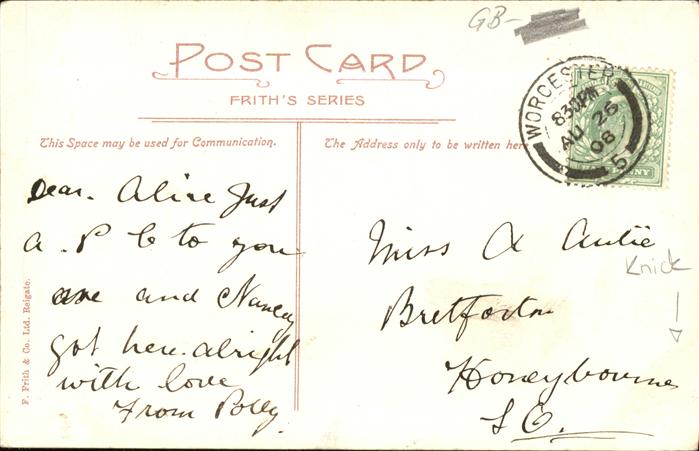 GB-
POST CARD
FRITH'S SERIES
This Space may be used for Communication.
The Address only to be written here
WORCESTER
8 30 PM
AU 26
08
5
Dear. Alice Just
a. P C to you
and Nancy
got here alright
with love
From Polly.
Miss A
Knick
Bretforton
Honeybourne
S O.
F. Frith & Co. Ltd. Reigate.